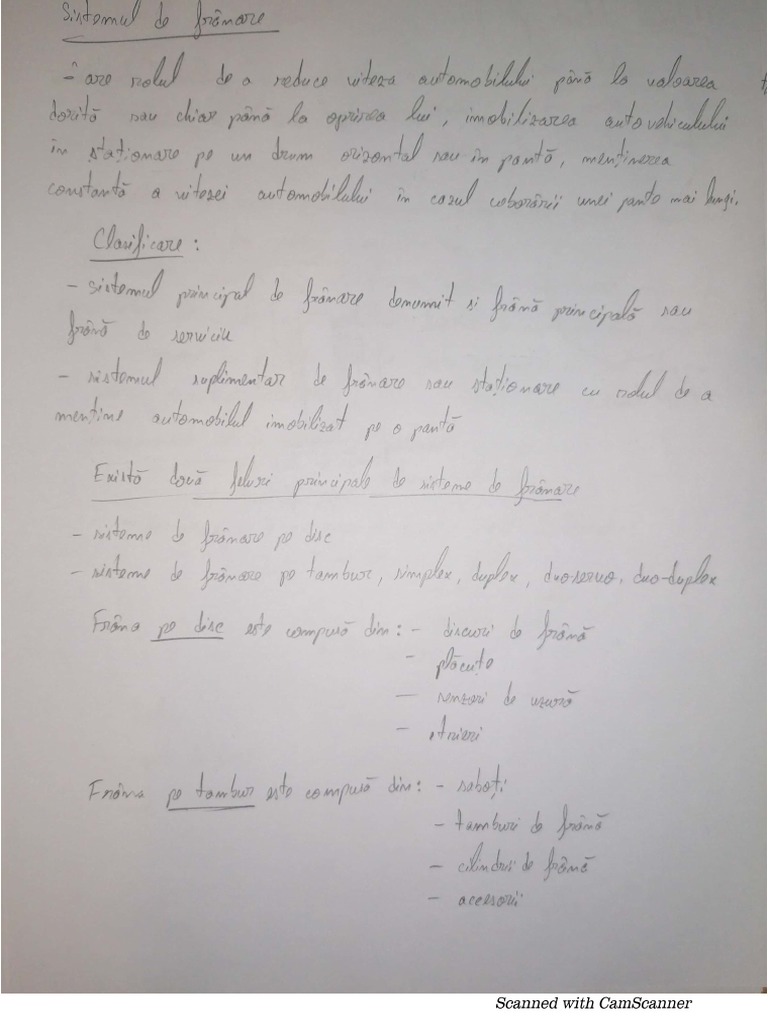 Sistemul de frânare
- are rolul de a reduce viteza automobilului până la valoarea
dorită sau chiar până la oprirea lui, imobilizarea autovehiculului
în staționare pe un drum orizontal sau în pantă, menținerea
constantă a vitezei automobilului în cazul coborârii unei pante mai lungi.
Clasificare :
- sistemul principal de frânare denumit si frână principală sau
frână de serviciu
- sistemul suplimentar de frânare sau staționare cu rolul de a
menține automobilul imobilizat pe o pantă
Există două feluri principale de sisteme de frânare
- sisteme de frânare pe disc
- sisteme de frânare pe tambur, simplex, duplex, duo-servo, duo-duplex
Frâna pe disc este compusă din : - discuri de frână
- plăcuțe
- senzori de uzură
- etrieri
Frâna pe tambur este compusă din : - saboți
- tamburi de frână
- cilindri de frână
- accesorii
Scanned with CamScanner